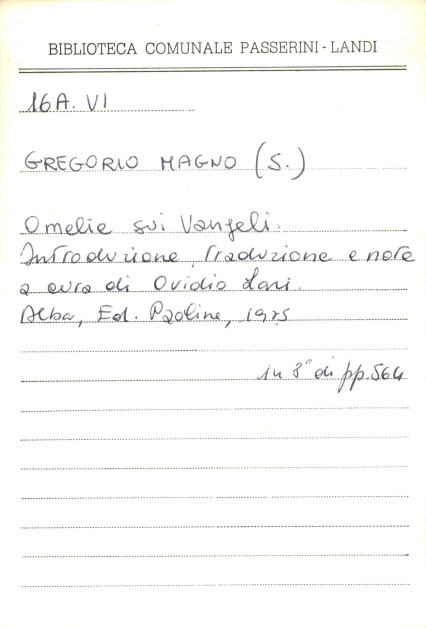 BIBLIOTECA COMUNALE PASSERINI - LANDI
16A. VI
GREGORIO MAGNO (S.)
Omelie sui Vangeli.
Introduzione, traduzione e note
a cura di Ovidio Lari.
Alba, Ed. Paoline, 1975
in 8° di pp. 564